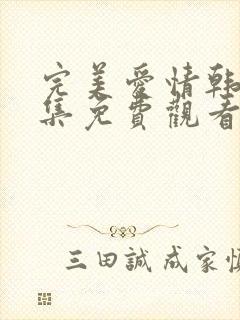 完美愛情韓
集免費觀看
三田誠成家恆